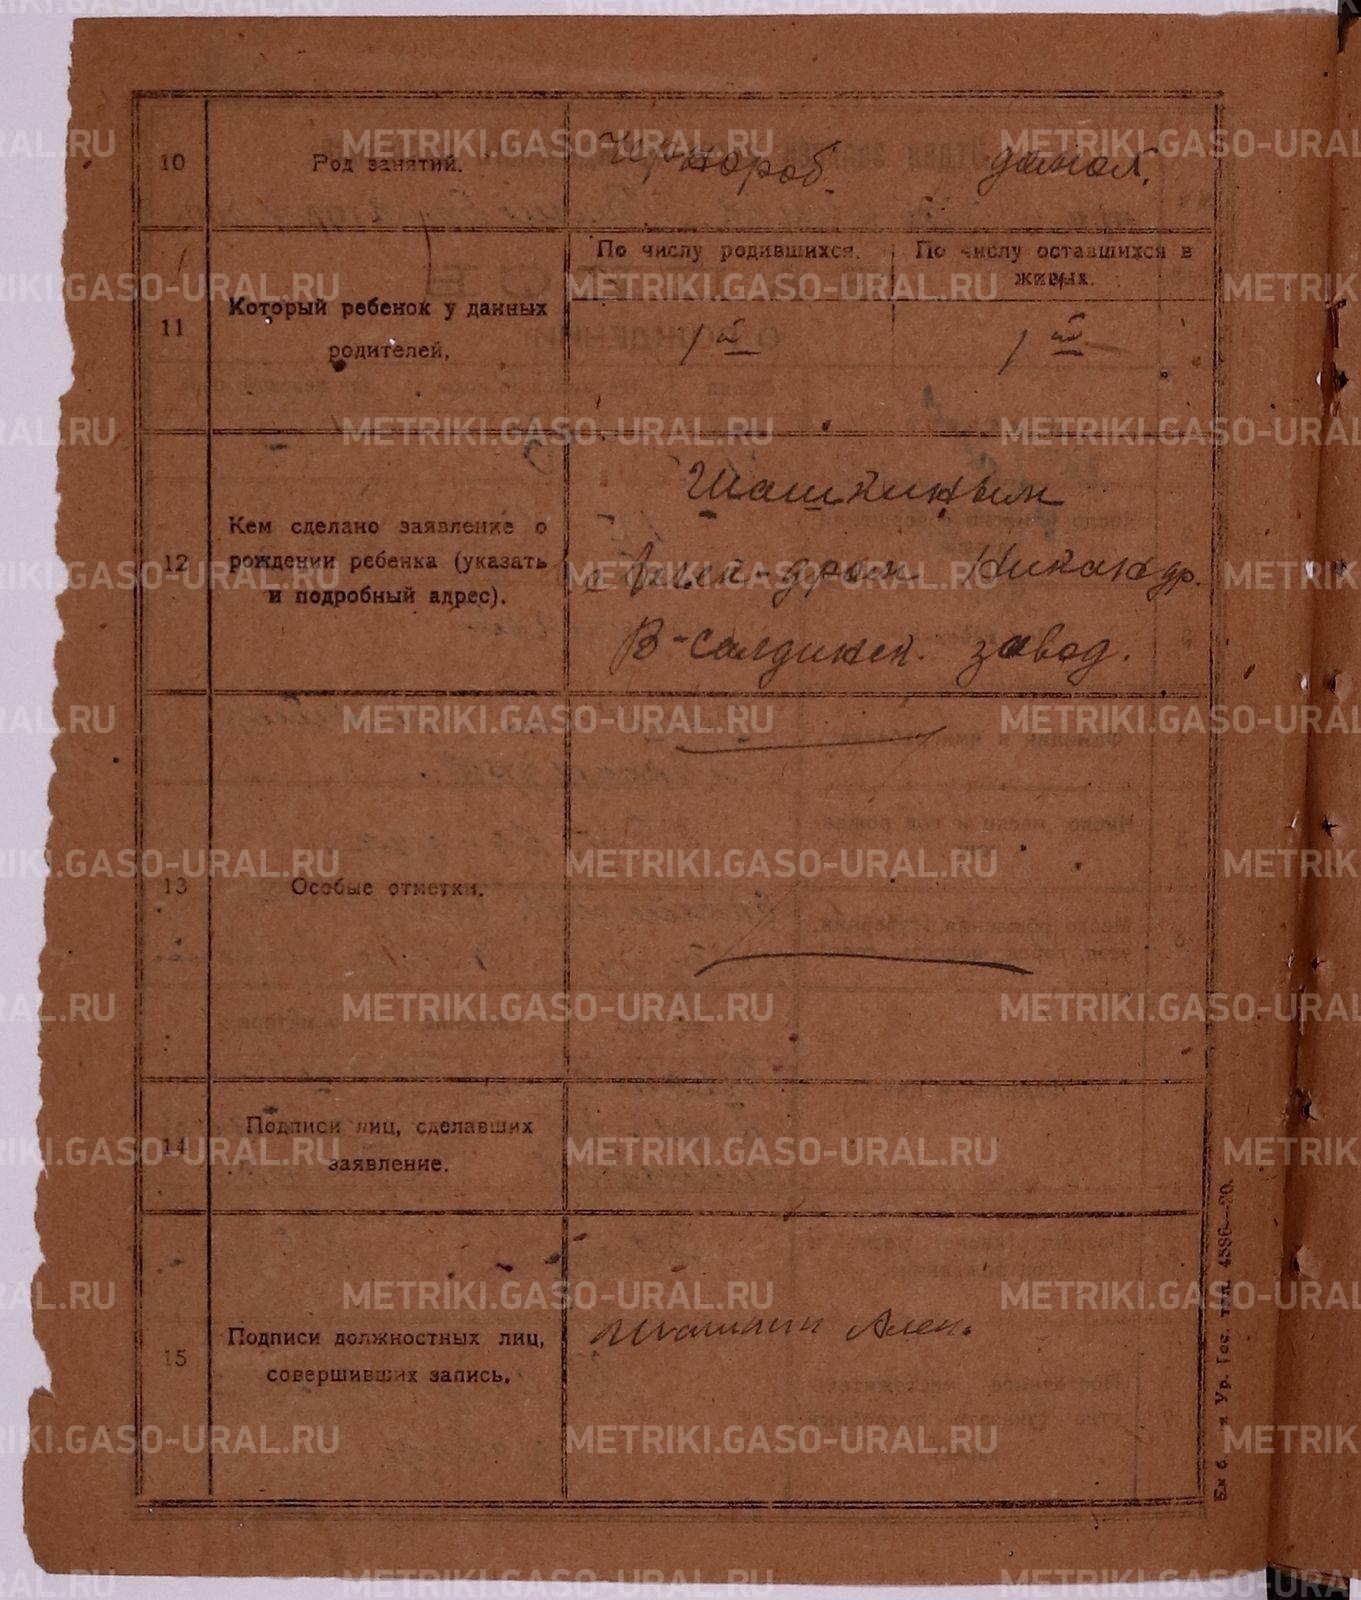 10 Род занятий. Чернораб. домох.
11 Который ребенок у данных родителей,
По числу родившихся. По числу оставшихся в живых.
1й 1й
12 Кем сделано заявление о
рождении ребенка (указать
и подробный адрес).
Шашкиным
Алек-дром Никандр.
В-Салдинск. завод.
13 Особые отметки.
14 Подписи лиц, сделавших
заявление.
15 Подписи должностных лиц,
совершивших запись.
Шашкин Алек.
Ур. Гос. тип. 4386—20.
METRIKI.GASO-URAL.RU